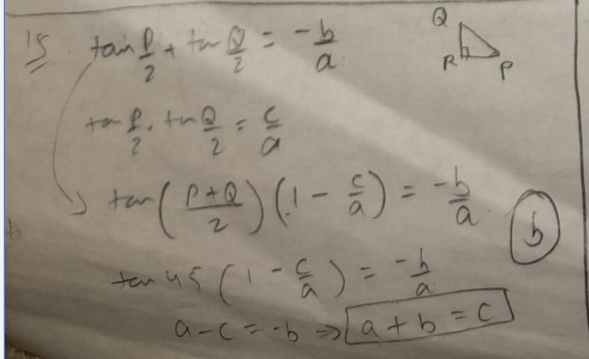 15 tan P/2 + tan Q/2 = -b/a
Q
R P
tan P/2 . tan Q/2 = c/a
tan((P+Q)/2)(1 - c/a) = -b/a
b
tan 45 (1 - c/a) = -b/a
a - c = -b ⇒ a + b = c